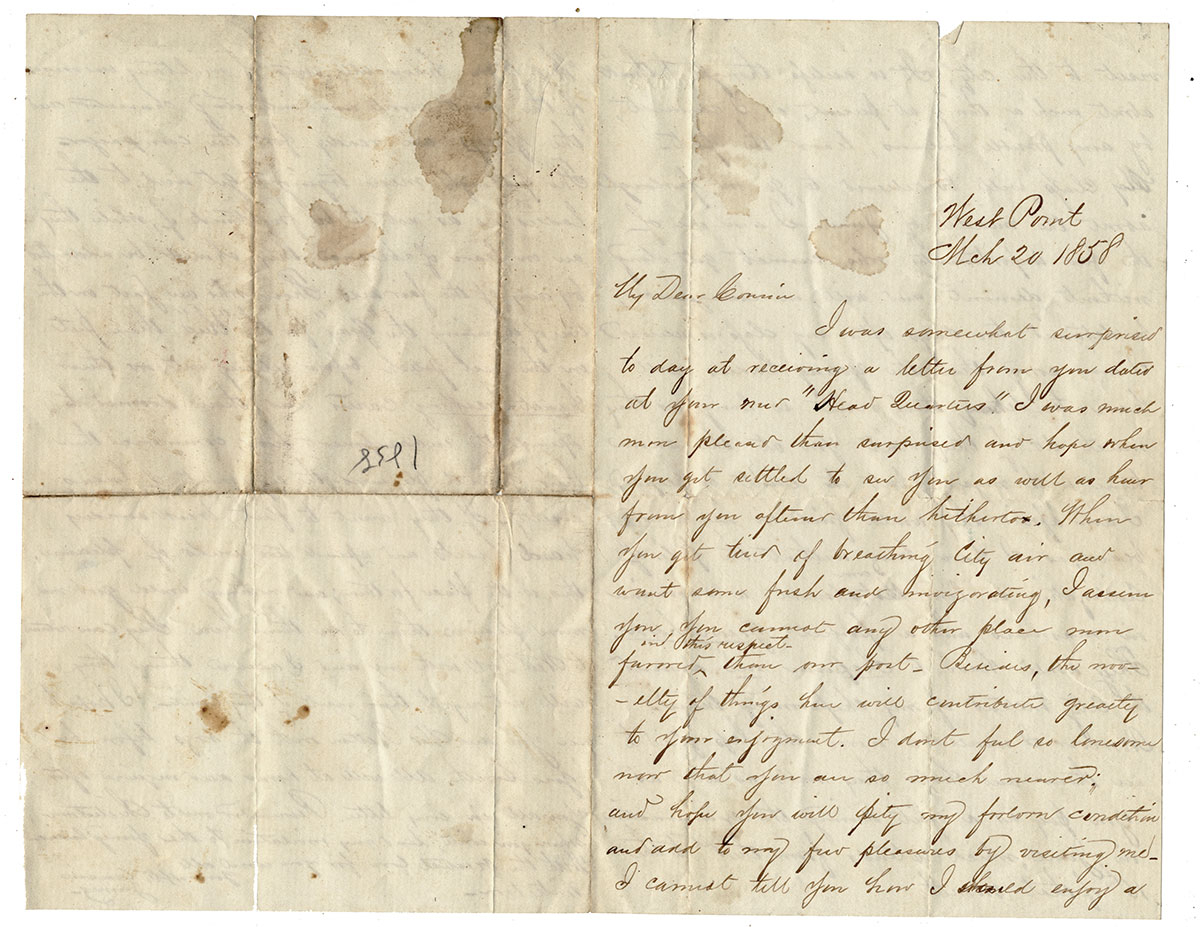 West Point
Mch 20 1858
My Dear Cousin
I was somewhat surprised
to day at receiving a letter from you dated
at your new "Head Quarters." I was much
more pleased than surprised and hope when
you get settled to see you as well as hear
from you oftener than hitherto. When
you get tired of breathing City air and
want some fresh and invigorating, I assure
you you cannot any other place more
in this respect-
favored ^ than our post_ Besides, the nov-
-elty of things here will contribute greatly
to your enjoyment. I don't feel so lonesome
now that you are so much nearer;
and hope you will pity my forlorn condition
and add to my few pleasures by visiting me_
I cannot tell you how I should enjoy a
1858